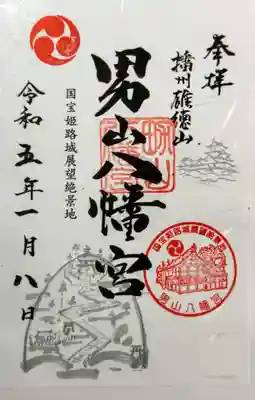 奉拝
播州雄徳山
男山八幡宮
国宝姫路城展望絶景地
令和五年一月八日
男山八幡宮